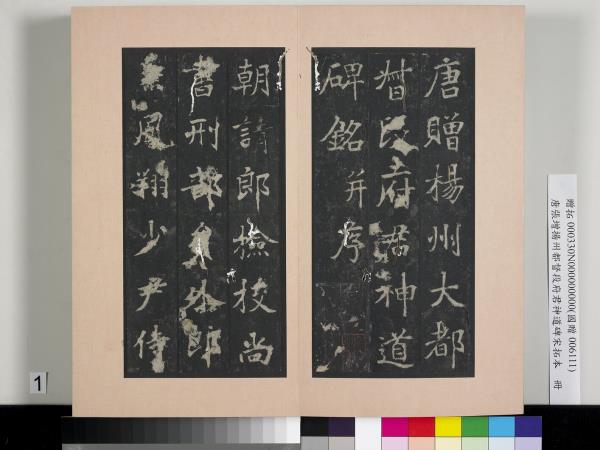 唐贈楊州大都
督段府君神道
碑銘并序
朝請郎檢校尚
書刑部員外郎
兼鳳翔少尹侍
贈拓 000330N000000000(國贈 006111)
唐張增揚州都督段府君神道碑宋拓本 冊
1